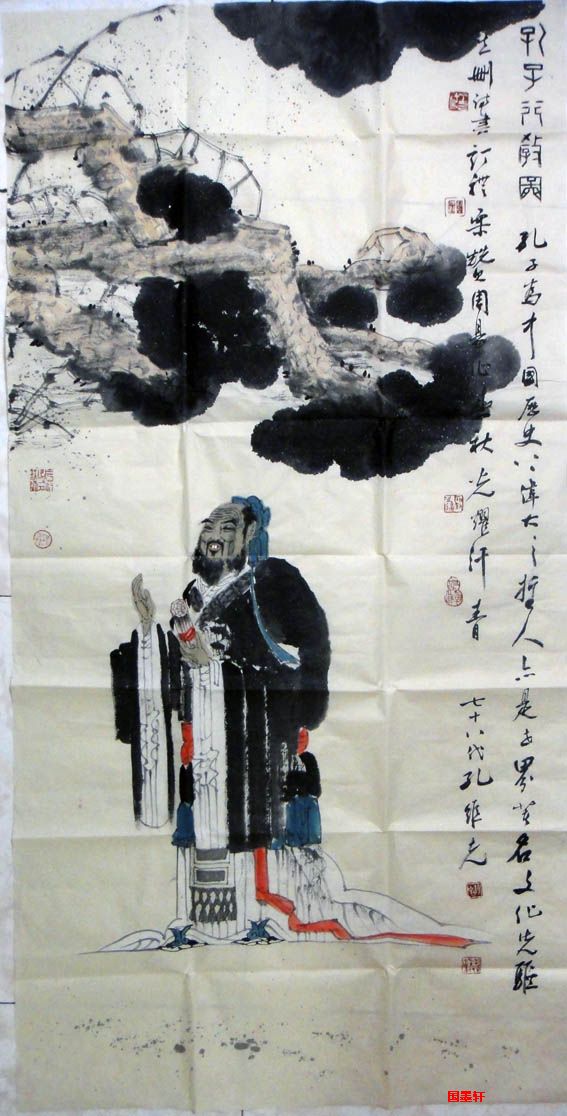 孔子行教图
孔子为中国历史上伟大之哲人亦是世界著名文化先驱
删诗书订礼乐赞周易作春秋光耀汗青
七十八代孔维克
国墨轩